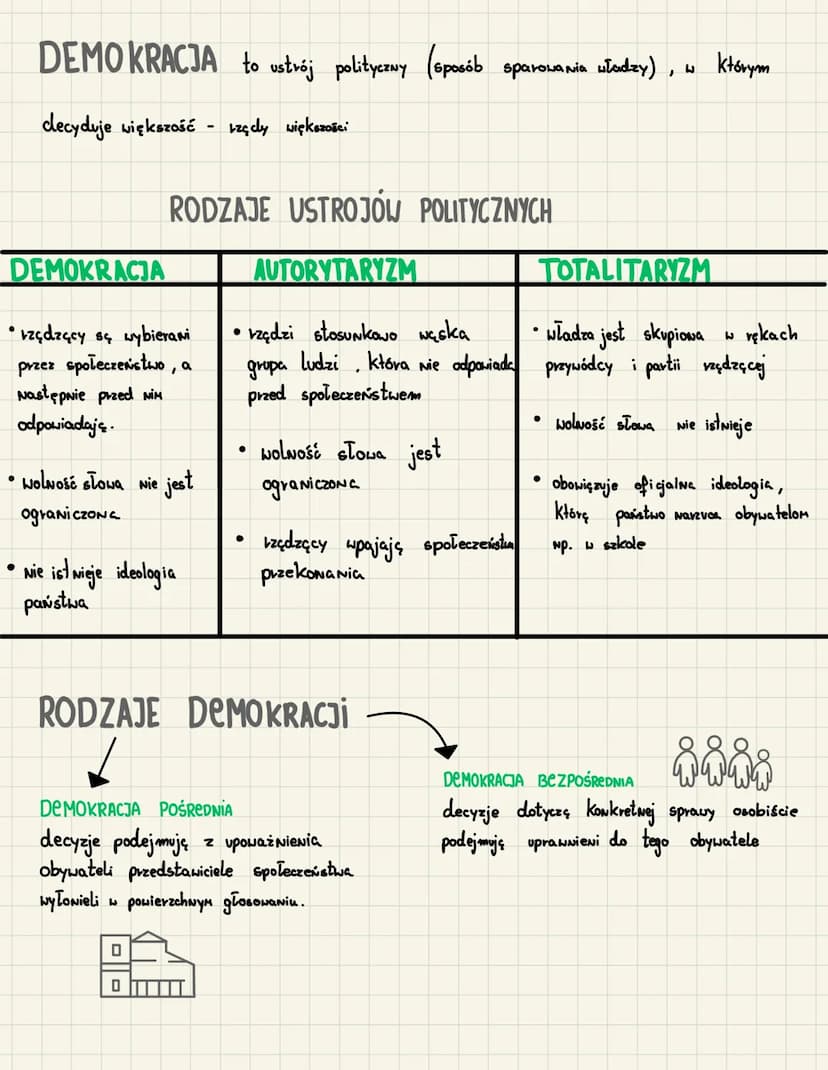 DEMOKRACJA to ustrój polityczny (sposób sparowania władzy), w którym
decyduje większość - rządy większości
RODZAJE USTROJÓW POLITYCZNYCH
DEMOKRACJA
• rządzący są wybierani
przez społeczeństwo, a
następnie przed nim
odpowiadają.
• wolność słowa nie jest
ograniczona
• nie istnieje ideologia
państwa
AUTORYTARYZM
• rządzi stosunkowo wąska
grupa ludzi, która nie odpowiada
przed społeczeństwem
• wolność słowa jest
ograniczona
• rządzący wpajają społeczeństwu
przekonania
TOTALITARYZM
• władza jest skupiona w rękach
przywódcy i partii rządzącej
• wolność słowa nie istnieje
• obowiązuje oficjalna ideologia,
którą państwo narzuca obywatelom
np. w szkole
RODZAJE DEMOKRACJI
DEMOKRACJA POŚREDNIA
decyzje podejmują z upoważnienia
obywateli przedstawiciele społeczeństwa
wyłonieli w powierzchnym głosowaniu.
DEMOKRACJA BEZPOŚREDNIA
decyzje dotyczą konkretnej sprawy osobiście
podejmują uprawnieni do tego obywatele